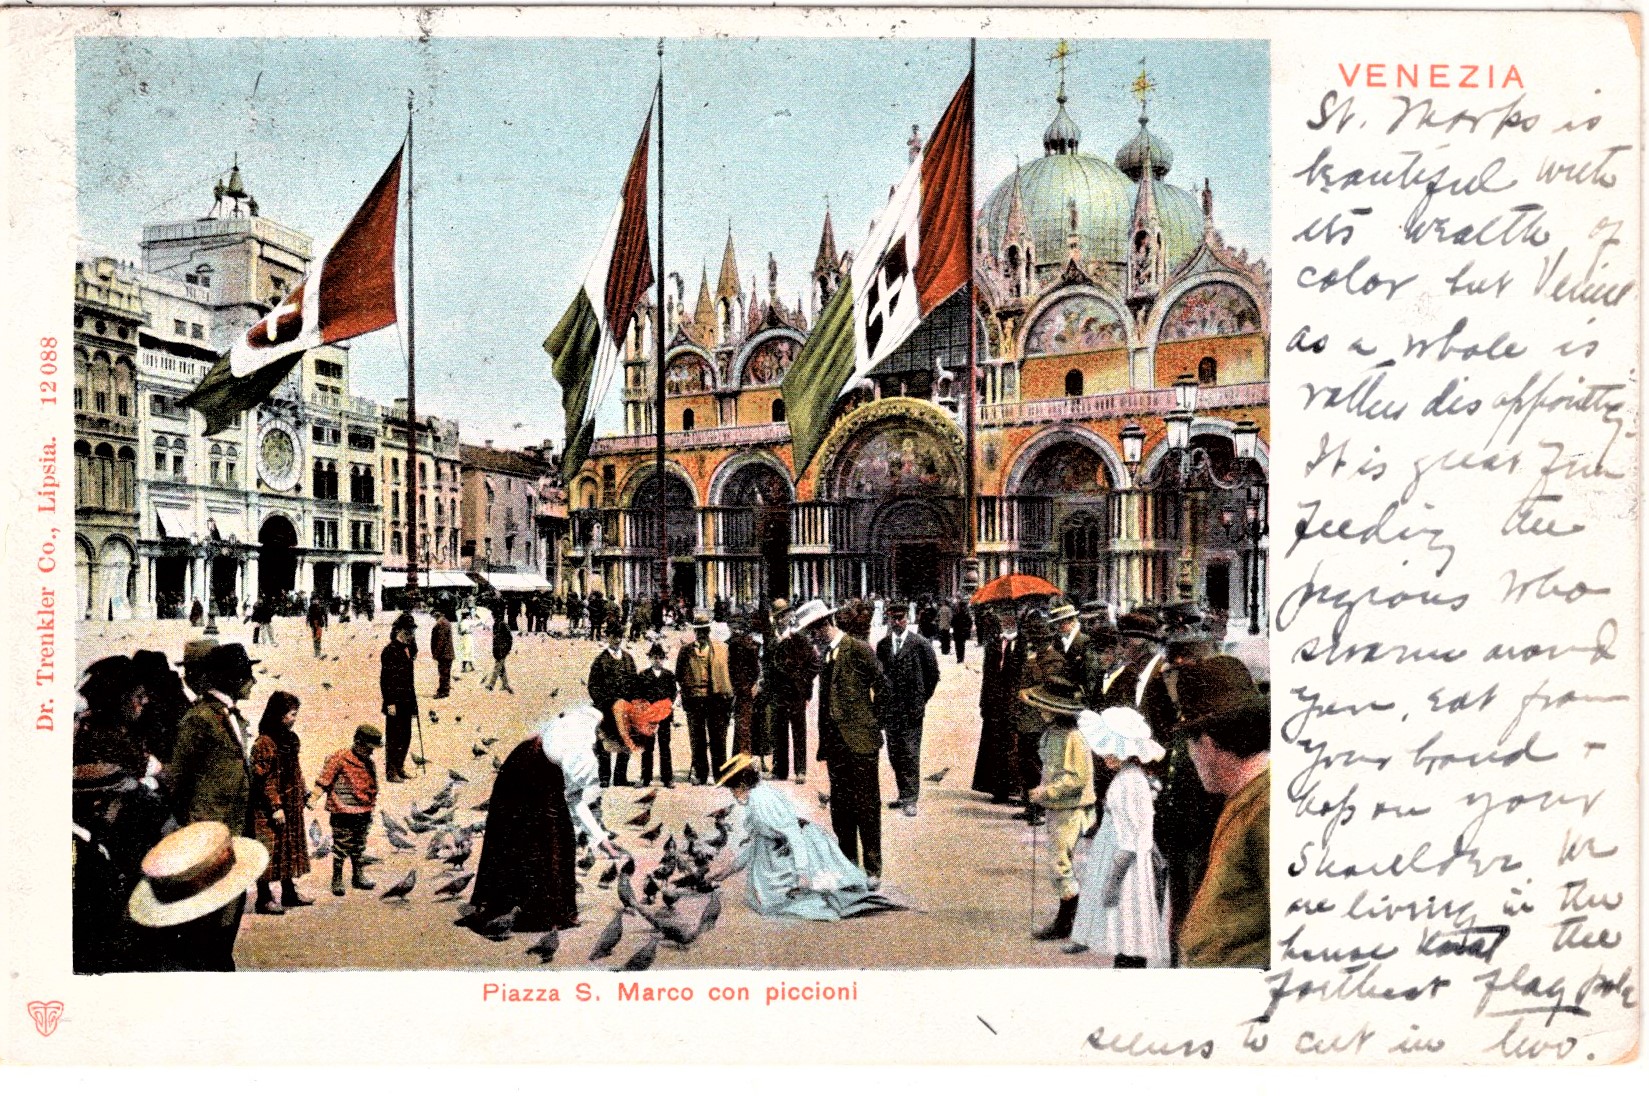 VENEZIA
St. Marks is
beautiful with
its wealth of
color but Venice
as a whole is
rather disappointing
It is great fun
feeding the
pigeons who
swarm around
you, eat from
your hand +
hop on your
shoulder. We
are living in the
house that the
farthest flag pole
seems to cut in two.
Piazza S. Marco con piccioni
Dr. Trenkler Co., Lipsia. 12 088